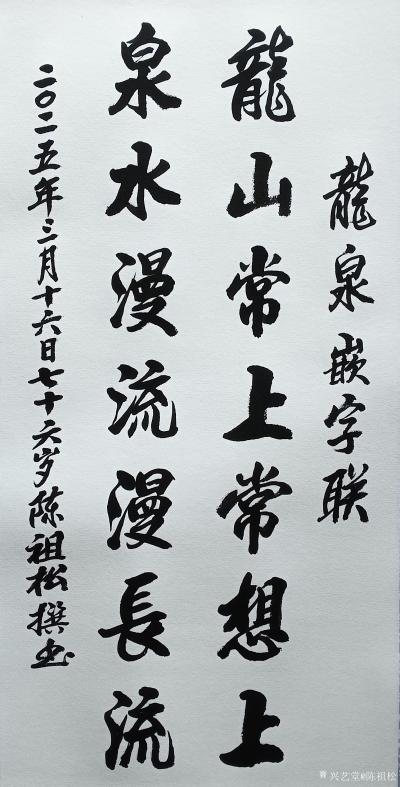 龍泉嵌字联
龍山常上常想上
泉水漫流漫長流
二〇二五年三月十六日七十六岁陈祖松撰书
兴艺堂@陈祖松